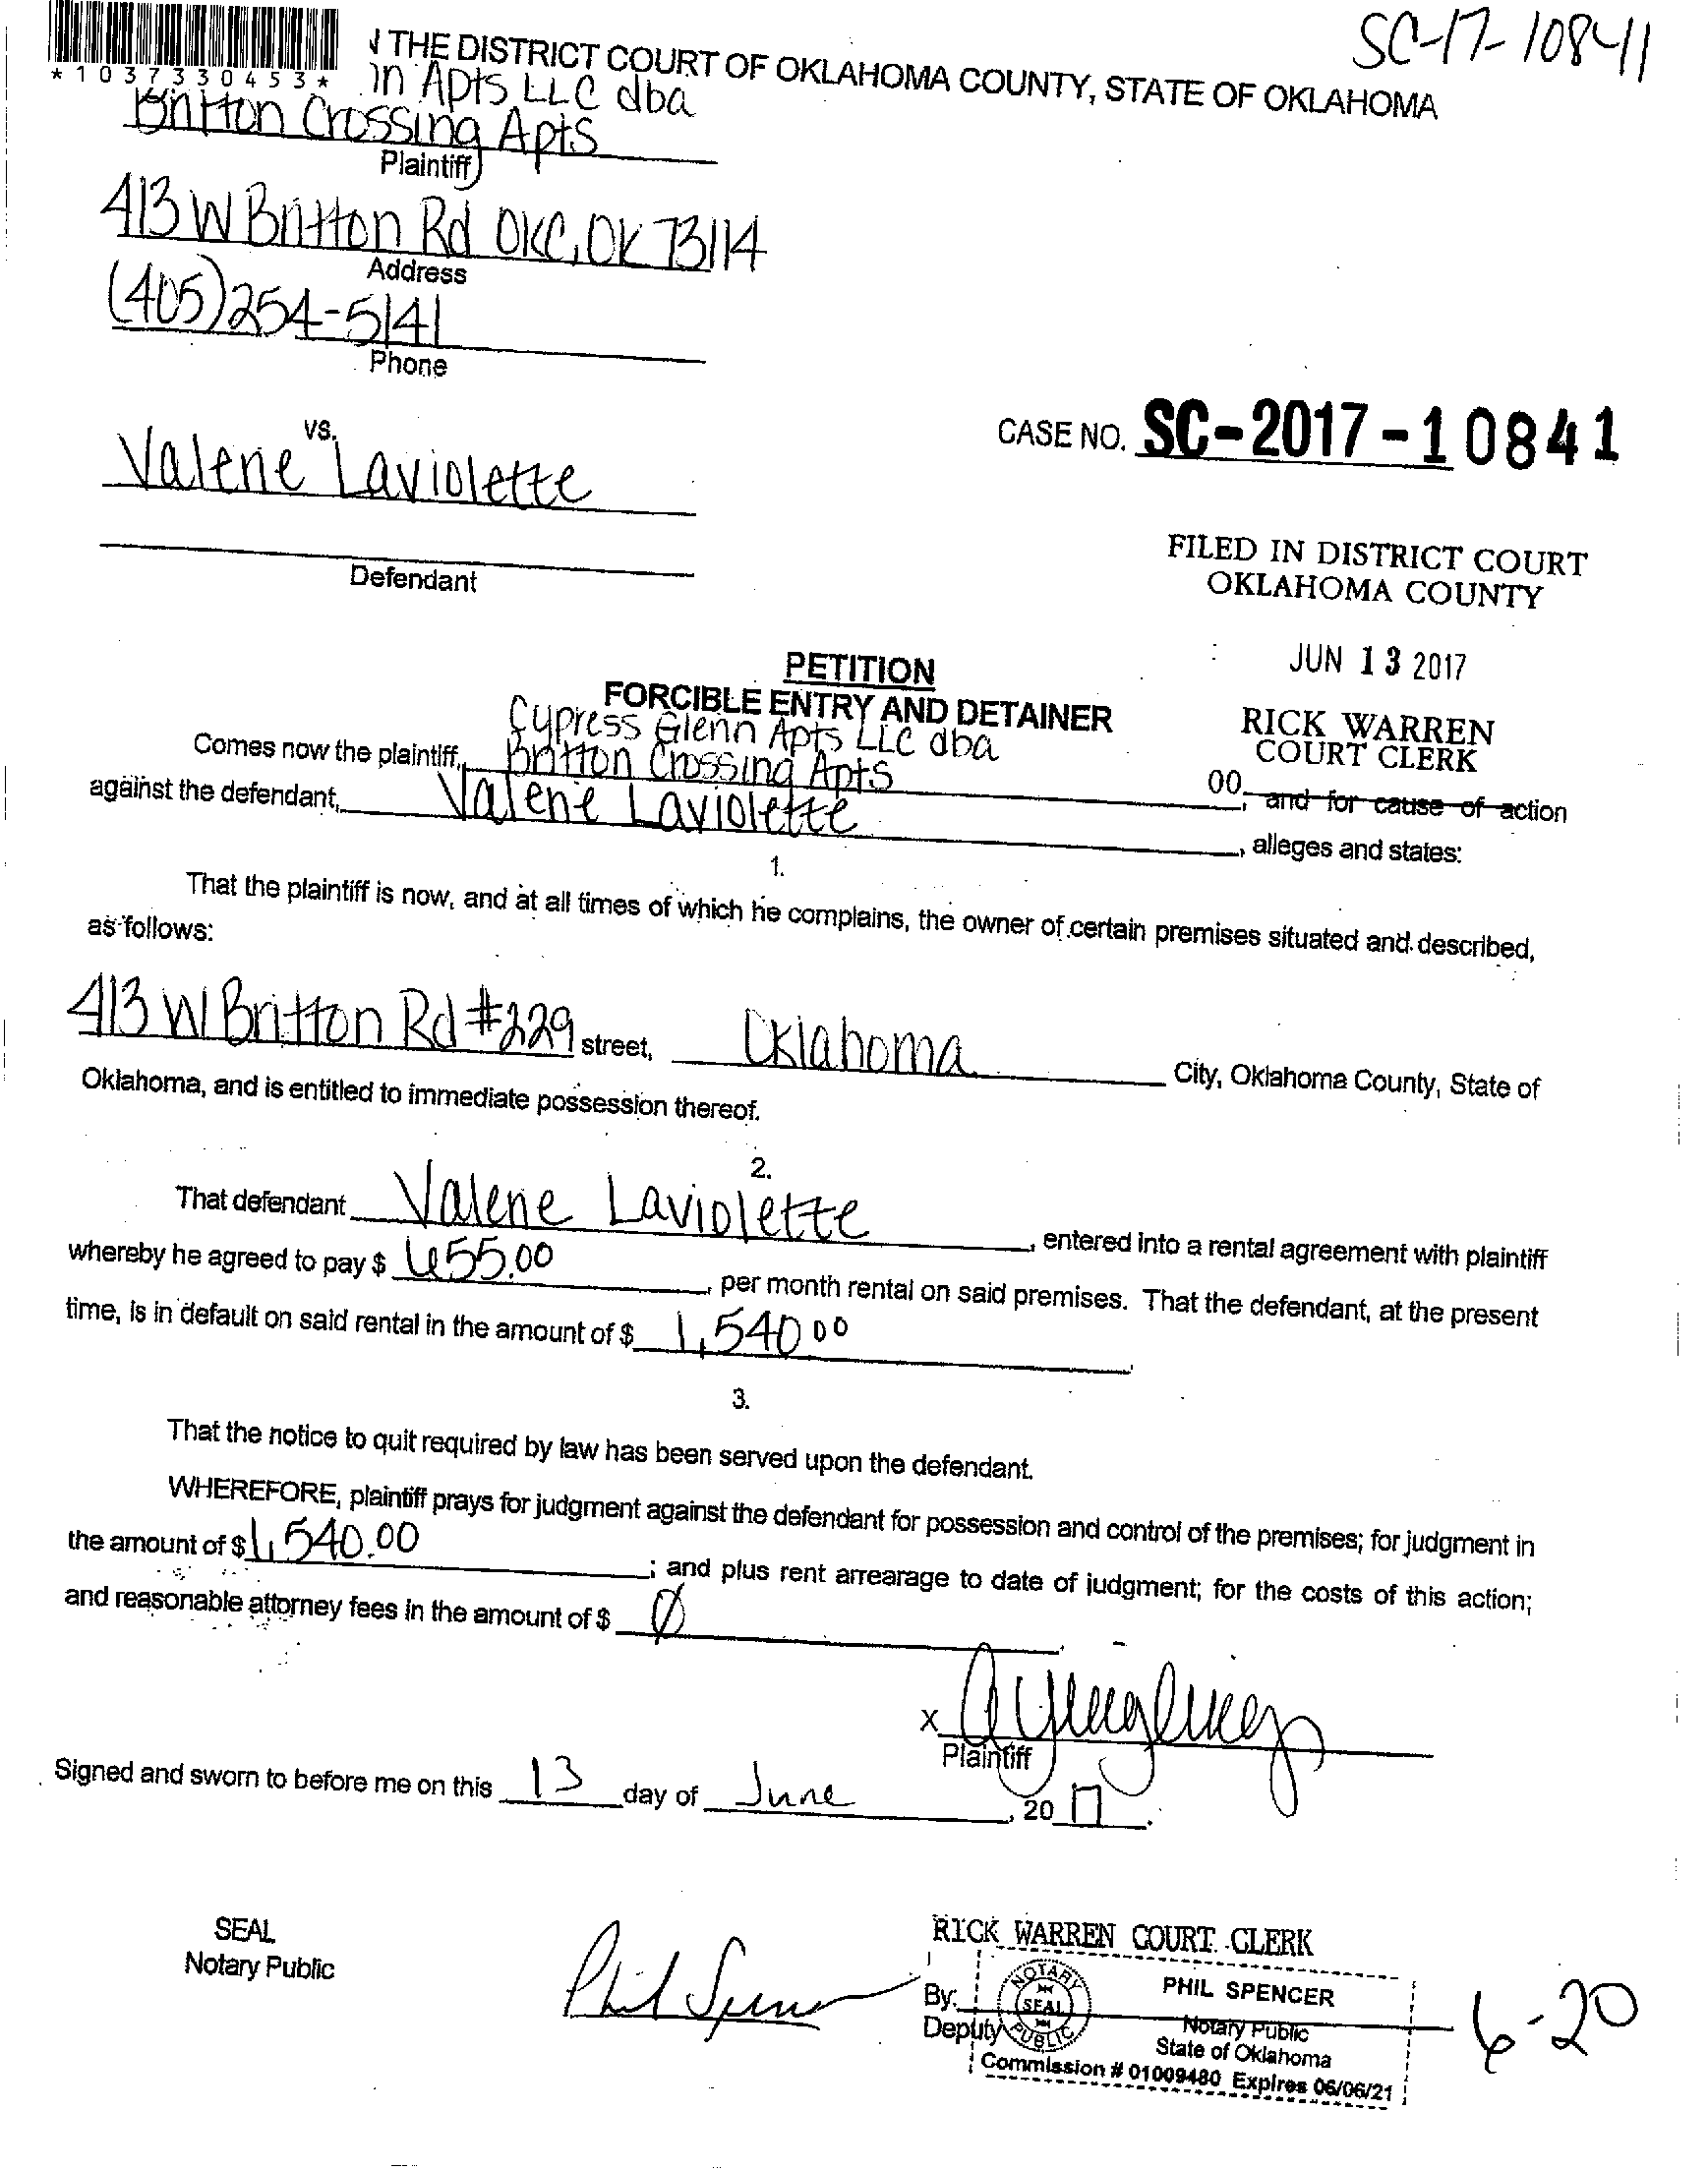 SC-17-10841
THE DISTRICT COURT OF OKLAHOMA COUNTY, STATE OF OKLAHOMA
*1037330453*
Apts LLC dba
Britton Crossing Apts
Plaintiff
413 W Britton Rd OKC, OK 73114
Address
(405)254-5141
Phone
vs.
Valerie Laviolette
CASE NO. SC-2017-10841
Defendant
FILED IN DISTRICT COURT
OKLAHOMA COUNTY
JUN 13 2017
RICK WARREN
COURT CLERK
PETITION
FORCIBLE ENTRY AND DETAINER
Cypress Glenn Apts LLC dba
Comes now the plaintiff, Britton Crossing Apts 00, and for cause of action
against the defendant, Valerie Laviolette, alleges and states:
1.
That the plaintiff is now, and at all times of which he complains, the owner of certain premises situated and described,
as follows:
413 W Britton Rd #229 street, Oklahoma City, Oklahoma County, State of
Oklahoma, and is entitled to immediate possession thereof.
2.
That defendant Valerie Laviolette, entered into a rental agreement with plaintiff
whereby he agreed to pay $ 655.00, per month rental on said premises. That the defendant, at the present
time, is in default on said rental in the amount of $ 1,540 00.
3.
That the notice to quit required by law has been served upon the defendant.
WHEREFORE, plaintiff prays for judgment against the defendant for possession and control of the premises; for judgment in
the amount of $ 1,540.00; and plus rent arrearage to date of judgment; for the costs of this action;
and reasonable attorney fees in the amount of $ Ø.
X
Plaintiff
Signed and sworn to before me on this 13 day of June, 20 17.
SEAL
Notary Public
Phil Spencer
RICK WARREN COURT CLERK
By:
Deputy
NOTARY PUBLIC
SEAL
PHIL SPENCER
Notary Public
State of Oklahoma
Commission # 01009480 Expires 06/06/21
6-20